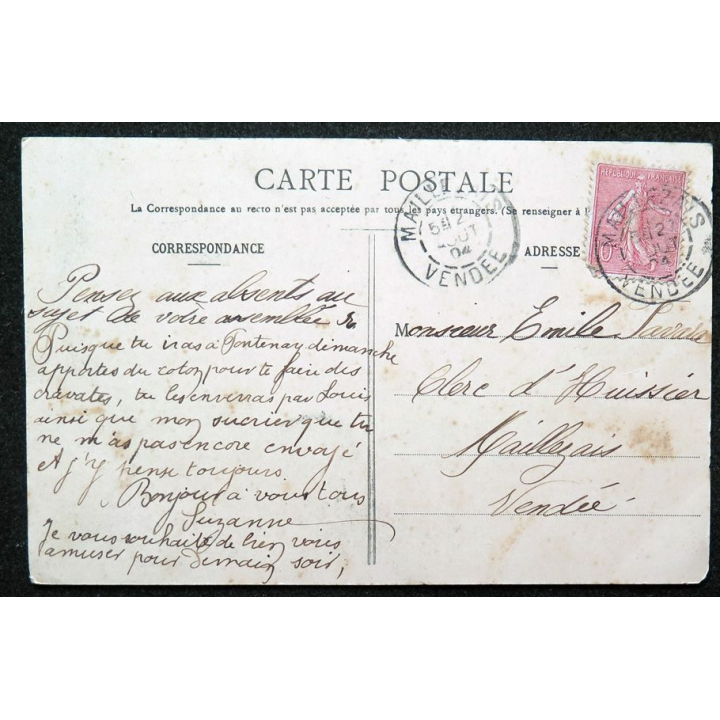 CARTE POSTALE
La Correspondance au recto n'est pas acceptée par tous les pays étrangers. (Se renseigner à l
CORRESPONDANCE
ADRESSE
MAILLEZAIS
5E 2
AOUT
04
VENDÉE
REPUBLIQUE FRANÇAISE
10
MAILLEZAIS
12
04
VENDÉE
Pensez aux absents au
sujet de votre assemblée
Puisque tu iras à Fontenay dimanche
apportes du coton pour te faire des
cravates, tu les enverras par Louis
ainsi que mon sucrier que tu
ne m'as pas encore envoyé
et j'y pense toujours
Bonjour à vous tous
Suzanne
Je vous souhaite de bien vous
amuser pour demain soir,
Monsieur Emile
Clerc d'Huissier
Maillezais
Vendée